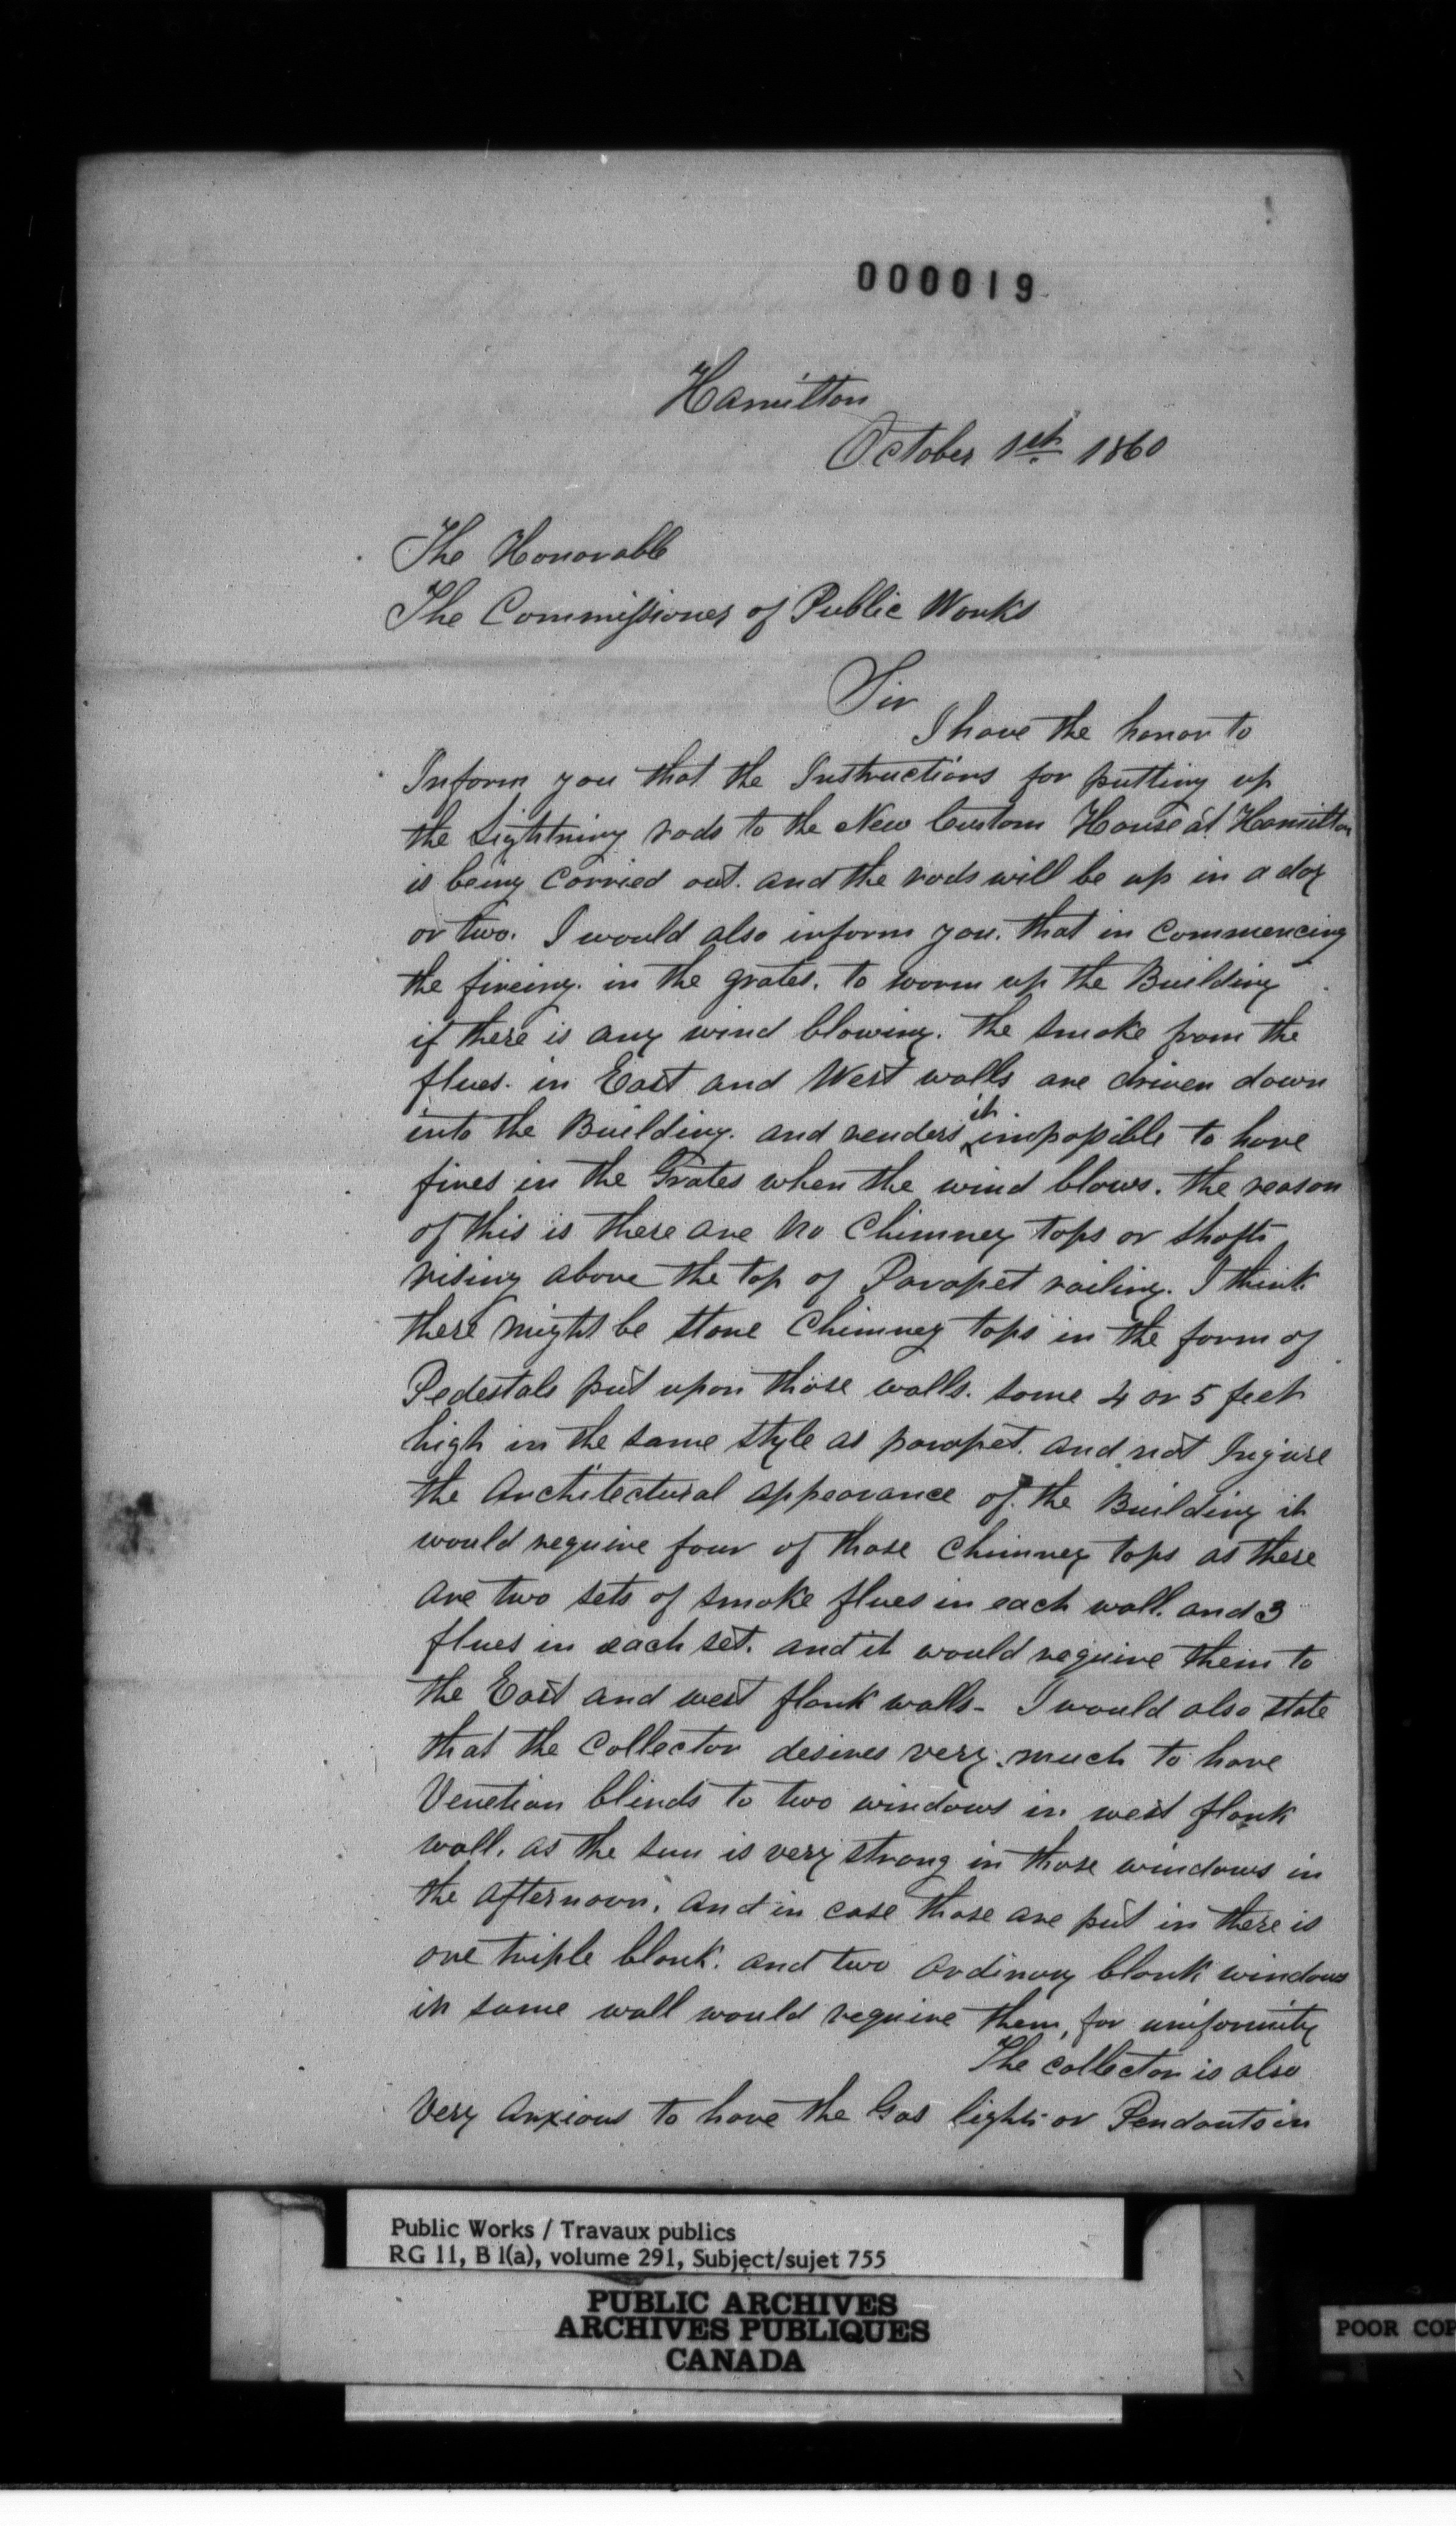 000019
Hamilton
October 1st 1860
The Honorable
The Commissioner of Public Works
Sir
I have the honor to
Inform you that the Instructions for putting up
the Lightning rods to the New Custom House at Hamilton
is being Carried out. and the rods will be up in a day
or two. I would also inform you. that in Commencing
the fireing. in the grates. to warm up the Building
if there is any wind blowing. the smoke from the
flues. in East and West walls are driven down
into the Building. and renders it impossible to have
fires in the Grates when the wind blows. the reason
of this is there are no Chimney tops or shafts
rising above the top of Parapet railing. I think
there might be stone Chimney tops in the form of
Pedestals put upon those walls. some 4 or 5 feet
high in the same style as parapet. and not Injure
the Architectural appearance of the Building it
would require four of those Chimney tops as there
are two sets of smoke flues in each wall. and 3
flues in each set. and it would require them to
the East and west flank walls - I would also state
that the Collector desires very much to have
Venetian blinds to two windows in west flank
wall. as the sun is very strong in those windows in
the afternoon. and in case those are put in there is
one triple blank. and two ordinary blank windows
in same wall would require them, for uniformity
The collector is also
Very Anxious to have the Gas lights or Pendants in
Public Works / Travaux publics
RG 11, B 1(a), volume 291, Subject/sujet 755
PUBLIC ARCHIVES
ARCHIVES PUBLIQUES
CANADA
POOR COP